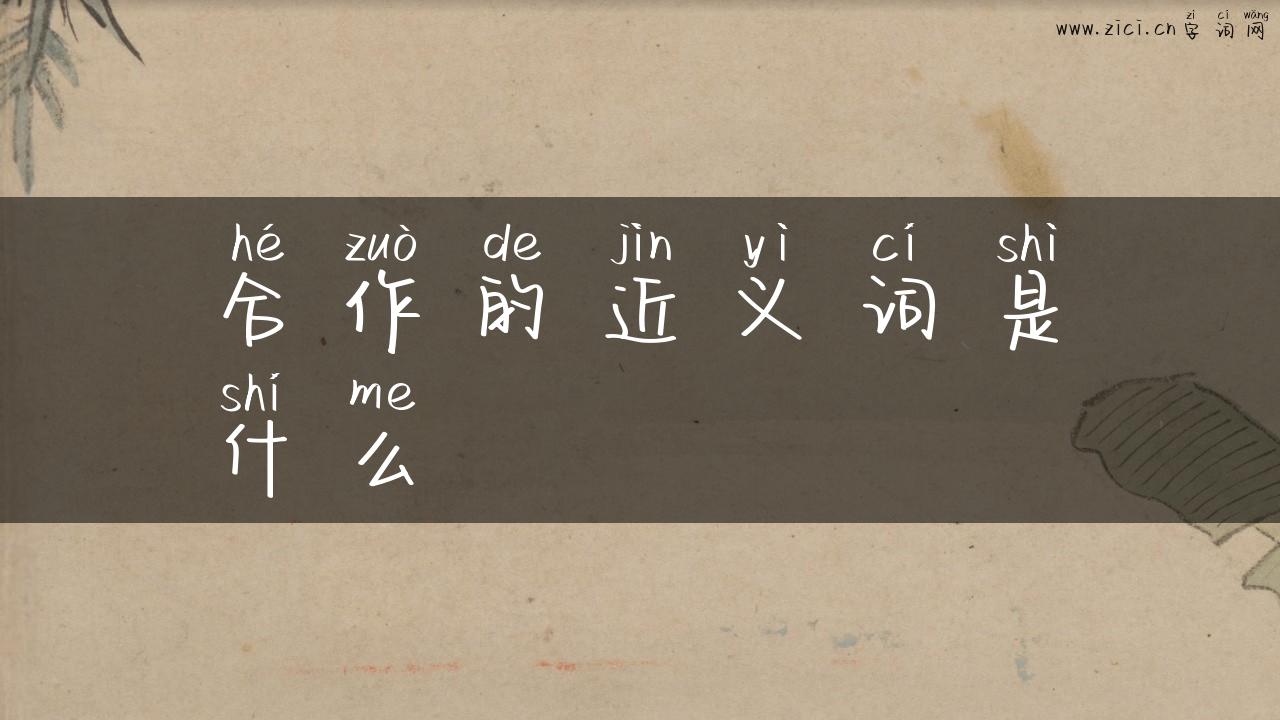 zì cí wǎng
www.zici.cn 字词网
hé zuò de jìn yì cí shì
合作的近义词是
shí me
什么